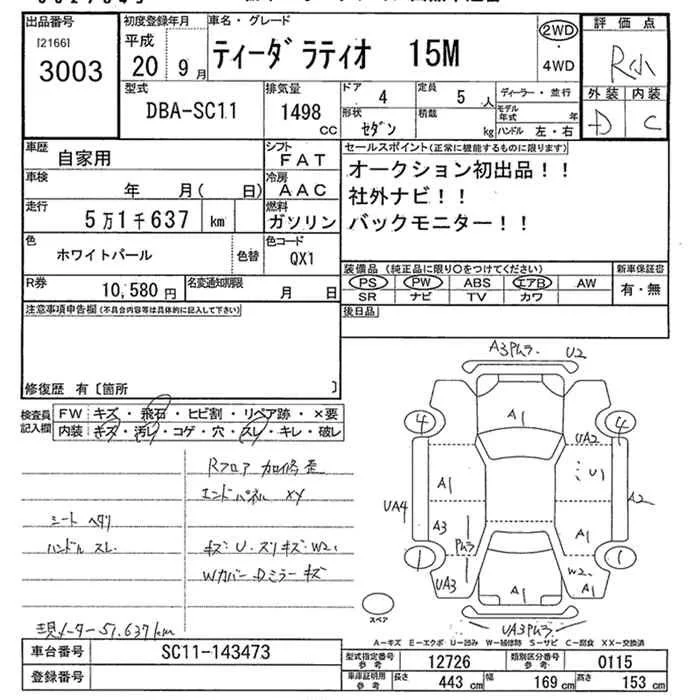 出品番号
I21661
3003
初度登録年月
平成
20 9月
車名・グレード
ティーダ ラティオ 15M
2WD
・
4WD
評価点
R小
外装 内装
D C
型式
DBA-SC11
排気量
1498
cc
ドア 4
定員 5 人
ディーラー・並行
形状 セダン
積載 kg
モデル年式 年
ハンドル 左・右
車歴
自家用
シフト
FAT
車検
年 月( 日)
冷房
AAC
走行
5万1千637 km
燃料
ガソリン
色
ホワイトパール
色替
色コード
QX1
R券
10,580円
名変通知期限
月 日
セールスポイント(正常に機能するものに限ります)
オークション初出品!!
社外ナビ!!
バックモニター!!
装備品 (純正品に限り○をつけてください)
新車保証書
PS PW ABS エアB AW
有・無
SR ナビ TV カワ
後日品
注意事項申告欄(不具合内容等は具体的に記入して下さい)
修復歴 有〔箇所 〕
検査員
記入欄
FW キズ・飛石・ヒビ割・リペア跡・×要
内装 キズ・汚レ・コゲ・穴・スレ・キレ・破レ
Rフロア 加修歪
エンドパネル XY
シート ヘタリ
ハンドル スレ
キズ・U・スリキズ・W2,
Wカバー・Dミラーキズ
現メーター 51.637km
A3Pムラ. U2
4 A1 4
UA2
A1 U1
UA4 A2
A3 A1
Pムラ
1 1
W2
UA3 A1 A1
UA3Pムラ.
スペア
A−キズ E−エクボ U−凹み W−補修跡 S−サビ C−腐食 XX−交換済
車台番号
SC11-143473
登録番号
型式指定番号
参考
12726
類別区分番号
参考
0115
車庫証明用
参考
長さ 443 cm
幅 169 cm
高さ 153 cm